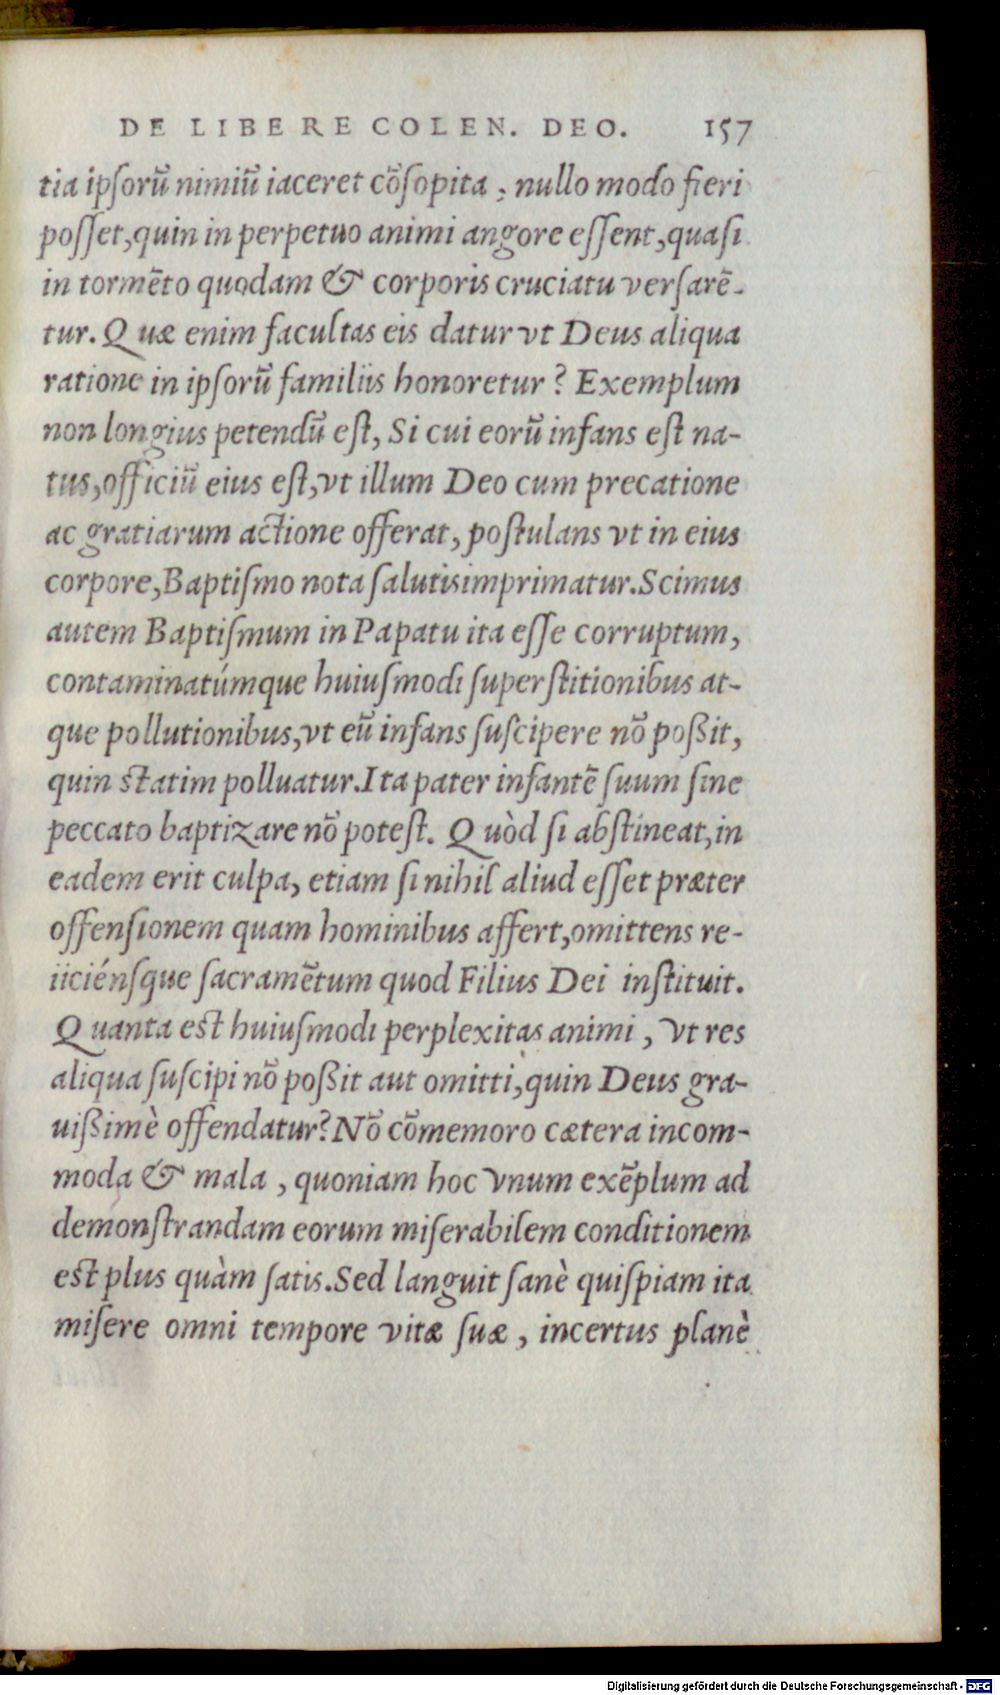 DE LIBERE COLEN. DEO. 157
tia ipſorũ nimiũ iaceret cõſopita, nullo modo fieri
poſſet, quin in perpetuo animi angore eſſent, quaſi
in tormẽto quodam & corporis cruciatu verſarẽ-
tur. Quæ enim facultas eis datur vt Deus aliqua
ratione in ipſorũ familiis honoretur? Exemplum
non longius petendũ eſt, Si cui eorũ infans eſt na-
tus, officiũ eius eſt, vt illum Deo cum precatione
ac gratiarum actione offerat, poſtulans vt in eius
corpore, Baptiſmo nota ſalutis imprimatur. Scimus
autem Baptiſmum in Papatu ita eſſe corruptum,
contaminatúmque huiuſmodi ſuperſtitionibus at-
que pollutionibus, vt eũ infans ſuſcipere nõ poßit,
quin ſtatim polluatur. Ita pater infantẽ ſuum ſine
peccato baptizare nõ poteſt. Quòd ſi abſtineat, in
eadem erit culpa, etiam ſi nihil aliud eſſet præter
offenſionem quam hominibus affert, omittens re-
iiciénſque ſacramẽtum quod Filius Dei inſtituit.
Quanta eſt huiuſmodi perplexitas animi, vt res
aliqua ſuſcipi nõ poßit aut omitti, quin Deus gra-
uißimè offendatur? Nõ cõmemoro cætera incom-
moda & mala, quoniam hoc vnum exẽplum ad
demonſtrandam eorum miſerabilem conditionem
eſt plus quàm ſatis. Sed languit ſanè quiſpiam ita
miſere omni tempore vitæ ſuæ, incertus planè
Digitalisierung gefördert durch die Deutsche Forschungsgemeinschaft - DFG